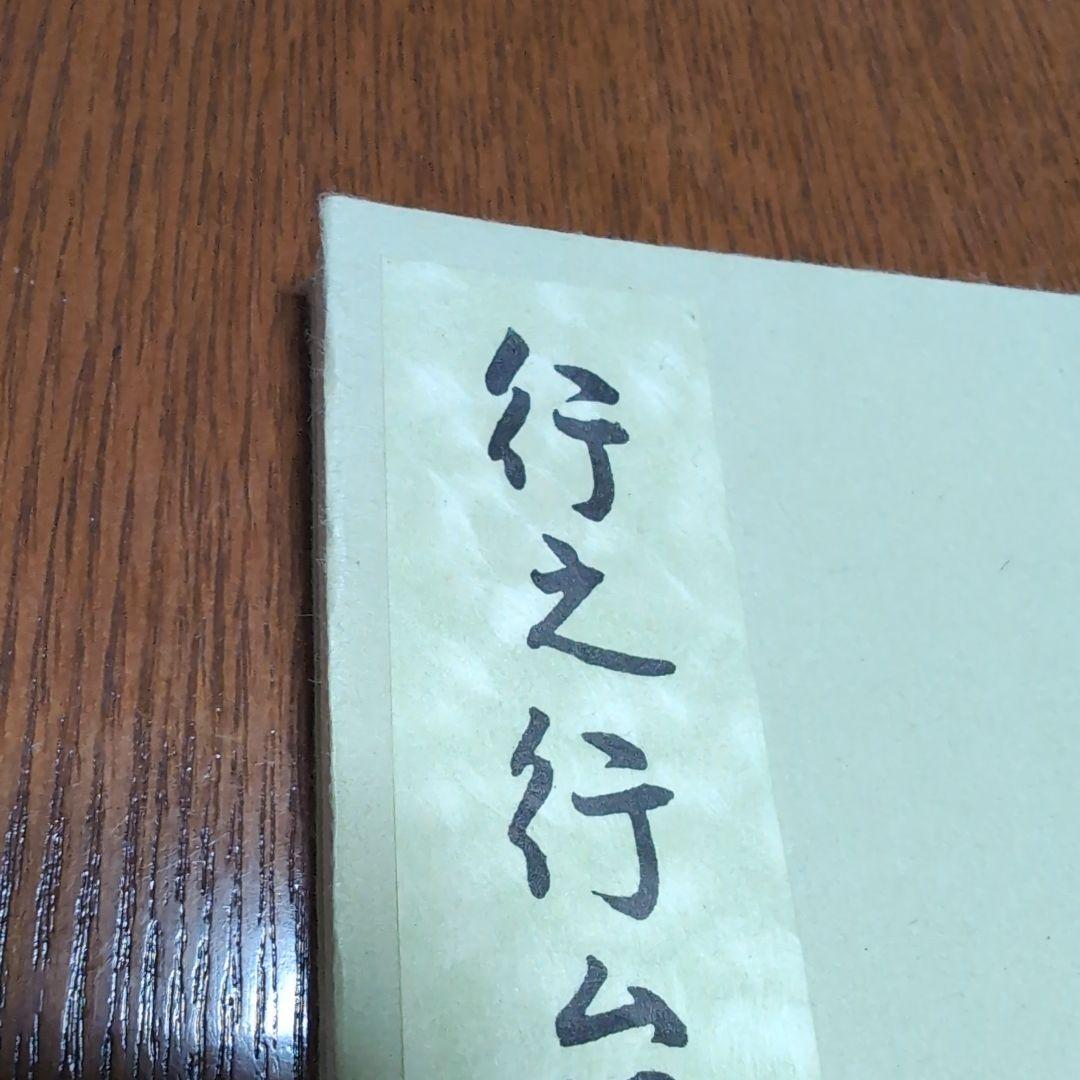 行之行